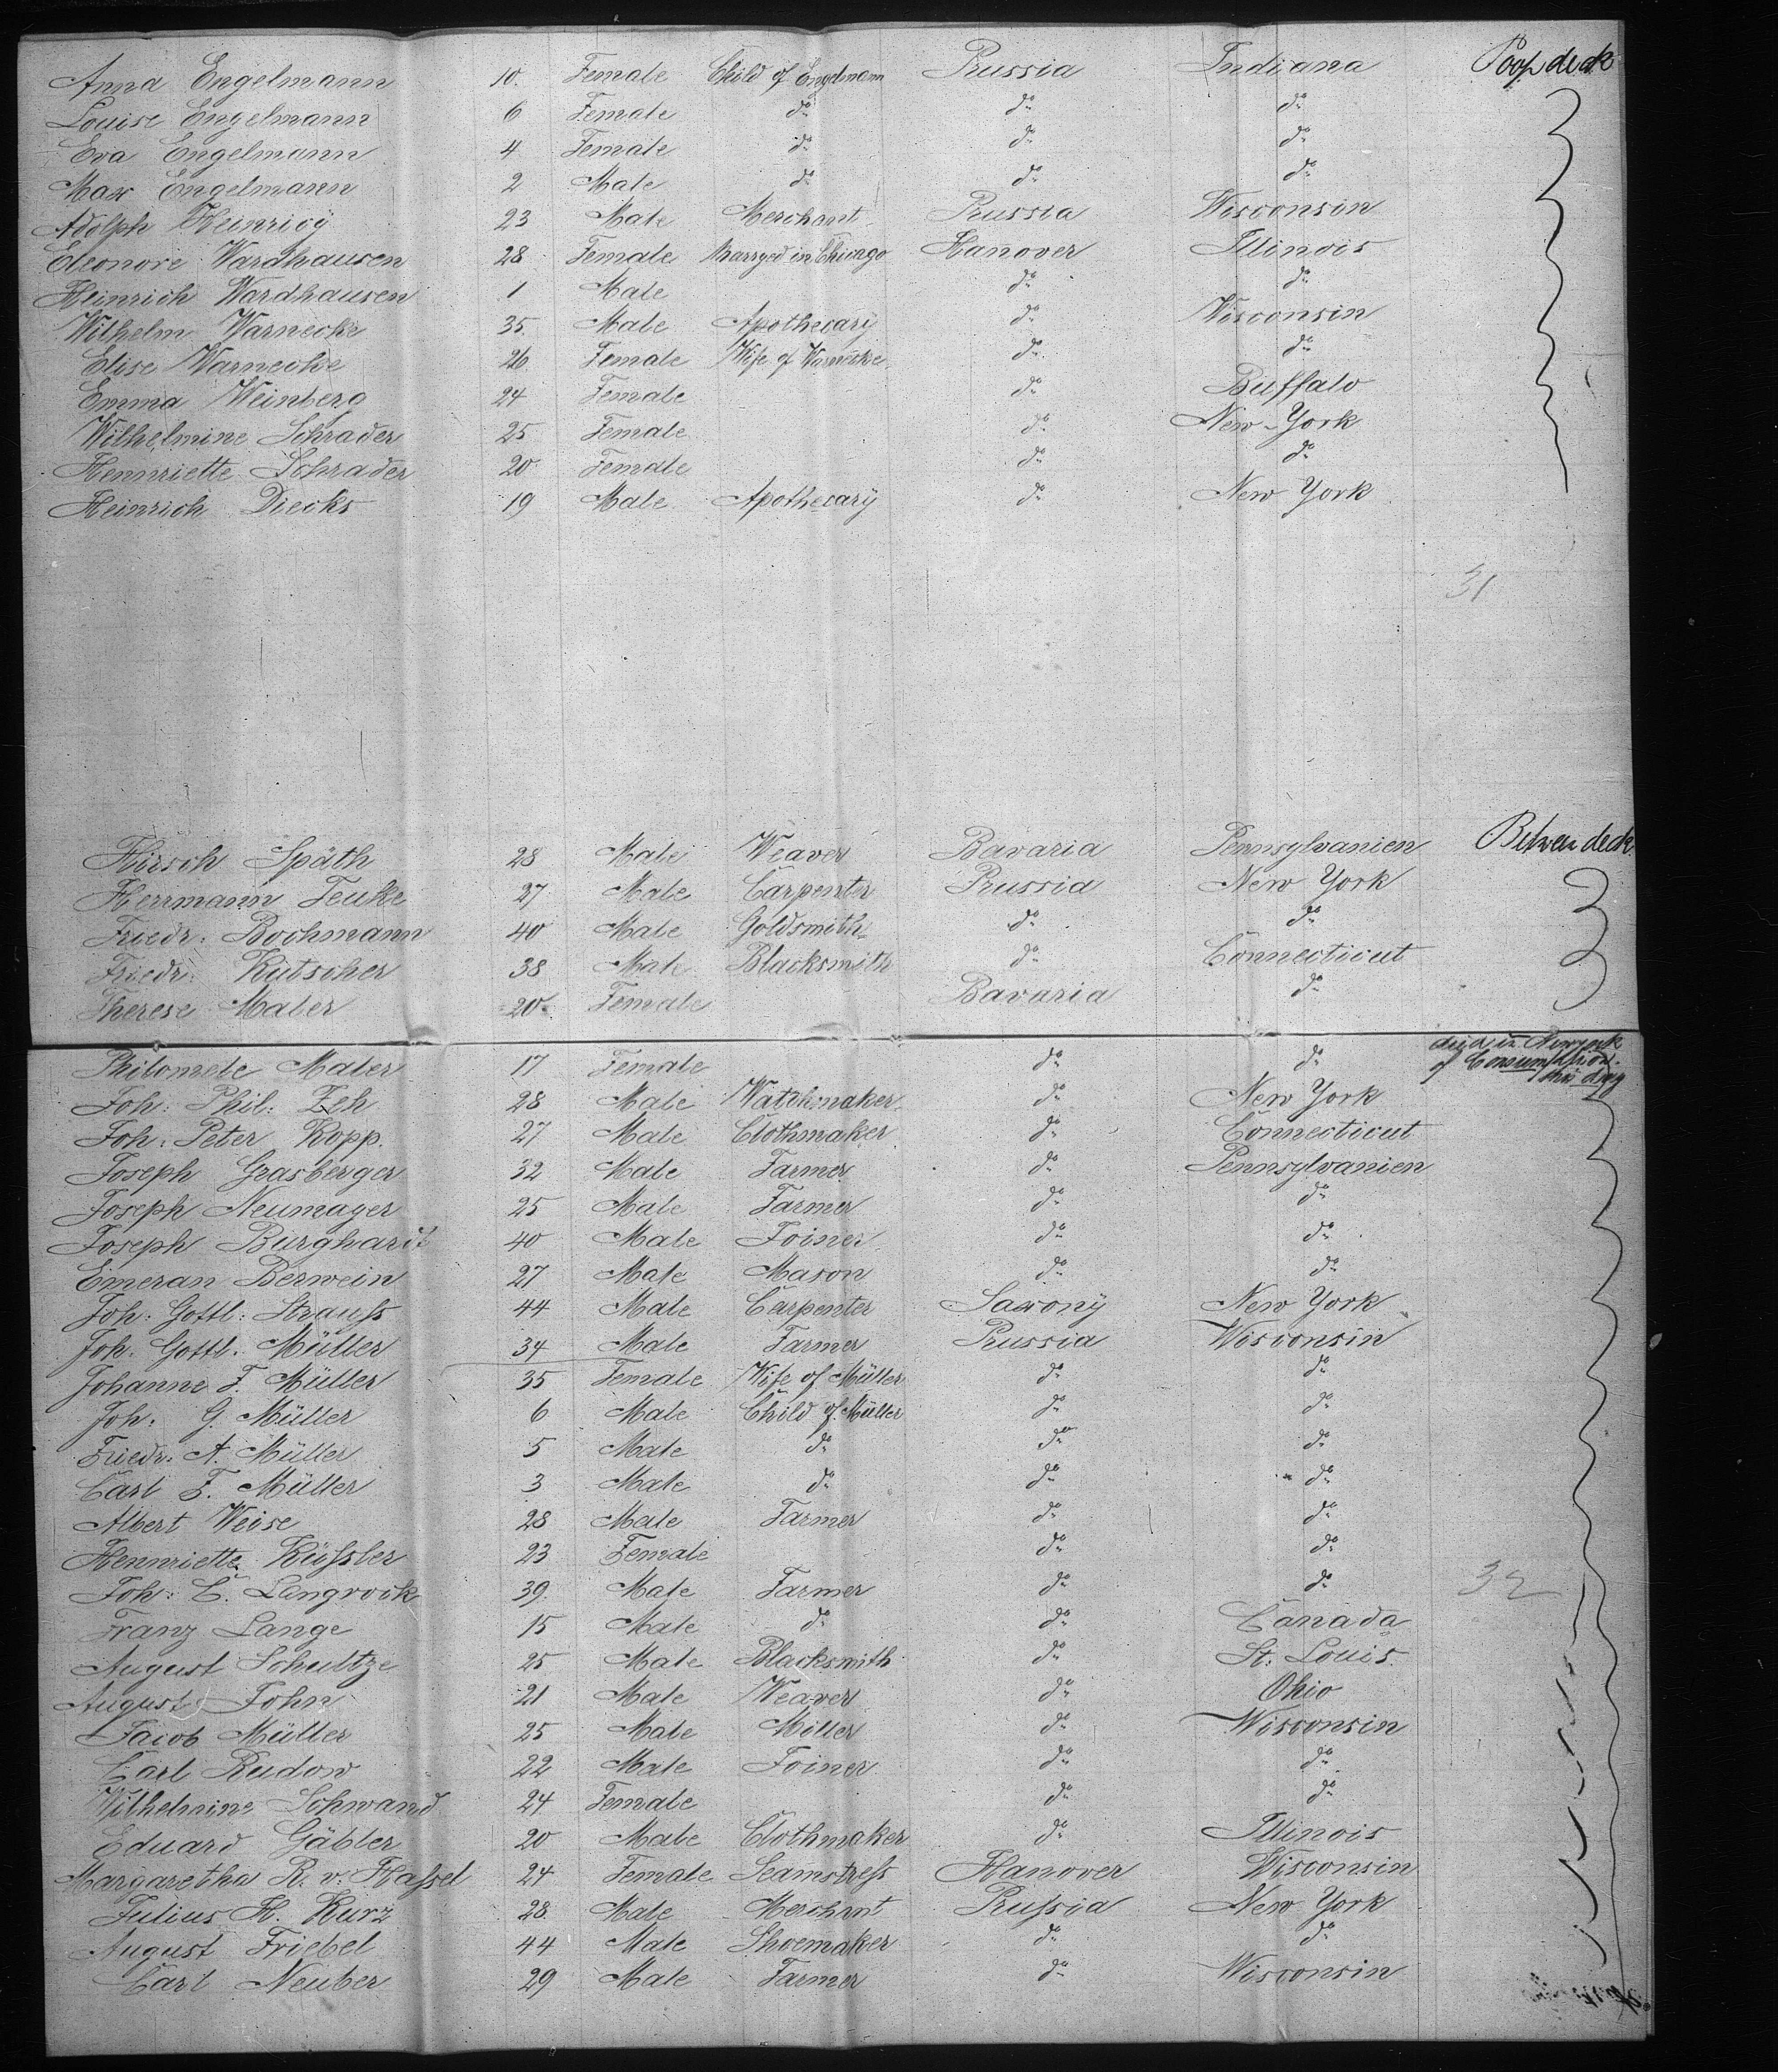 Anna Engelmann 10. Female Child of Engelmann Prussia Indiana Poop deck
Louise Engelmann 6 Female do do do
Eva Engelmann 4 Female do do do
Max Engelmann 2 Male do do do
Adolph Heinricy 23 Male Merchant Prussia Wisconsin
Eleonore Wardhausen 28 Female Marryed in Chicago Hanover Illinois
Heinrich Wardhausen 1 Male do do
Wilhelm Warnecke 35 Male Apothecary do Wisconsin
Elise Warnecke 26 Female Wife of Warnecke do do
Emma Weinberg 24 Female do Buffalo
Wilhelmine Schrader 25 Female do New-York
Hennriette Schrader 20 Female do do
Heinrich Diecks 19 Male Apothecary do New York
31
Hirsch Späth 28 Male Weaver Bavaria Pennsylvanien Betwen deck
Herrmann Teuke 27 Male Carpenter Prussia New York
Friedr: Bochmann 40 Male Goldsmith do do
Friedr: Kutscher 38 Male Blacksmith do Connecticut
Therese Maler 20 Female Bavaria do
Philomele Maler 17 Female do do died in Newyork of Consumption this day
Joh: Phil: Zeh 28 Male Watchmaker do New York
Joh: Peter Kopp. 27 Male Clothmaker do Connecticut
Joseph Grasberger 32 Male Farmer do Pennsylvanien
Joseph Neumayer 25 Male Farmer do do
Joseph Burghardt 40 Male Joiner do do
Emeran Berwein 27 Male Mason do do
Joh: Gottl: Strauss 44 Male Carpenter Saxony New York
Joh: Gottl: Müller 34 Male Farmer Prussia Wisconsin
Johanne F. Müller 35 Female Wife of Müller do do
Joh: G. Müller 6 Male Child of Müller do do
Friedr: A. Müller 5 Male do do do
Carl F. Müller 3 Male do do do
Albert Weise 28 Male Farmer do do
Hennriette Küssler 23 Female do do
Joh: C. Langrock 39 Male Farmer do do 32
Franz Lange 15 Male do do Canada
August Schultze 25 Male Blacksmith do St. Louis
August John 21 Male Weaver do Ohio
Jacob Müller 25 Male Miller do Wisconsin
Carl Rudow 22 Male Joiner do do
Wilhelmine Schwand 24 Female do do
Eduard Gäbler 20 Male Clothmaker do Illinois
Margaretha R. v. Hassel 24 Female Seamstress Hanover Wisconsin
Julius H. Kurz 28 Male Merchant Prussia New York
August Friebel 44 Male Shoemaker do do
Carl Neuber 29 Male Farmer do Wisconsin